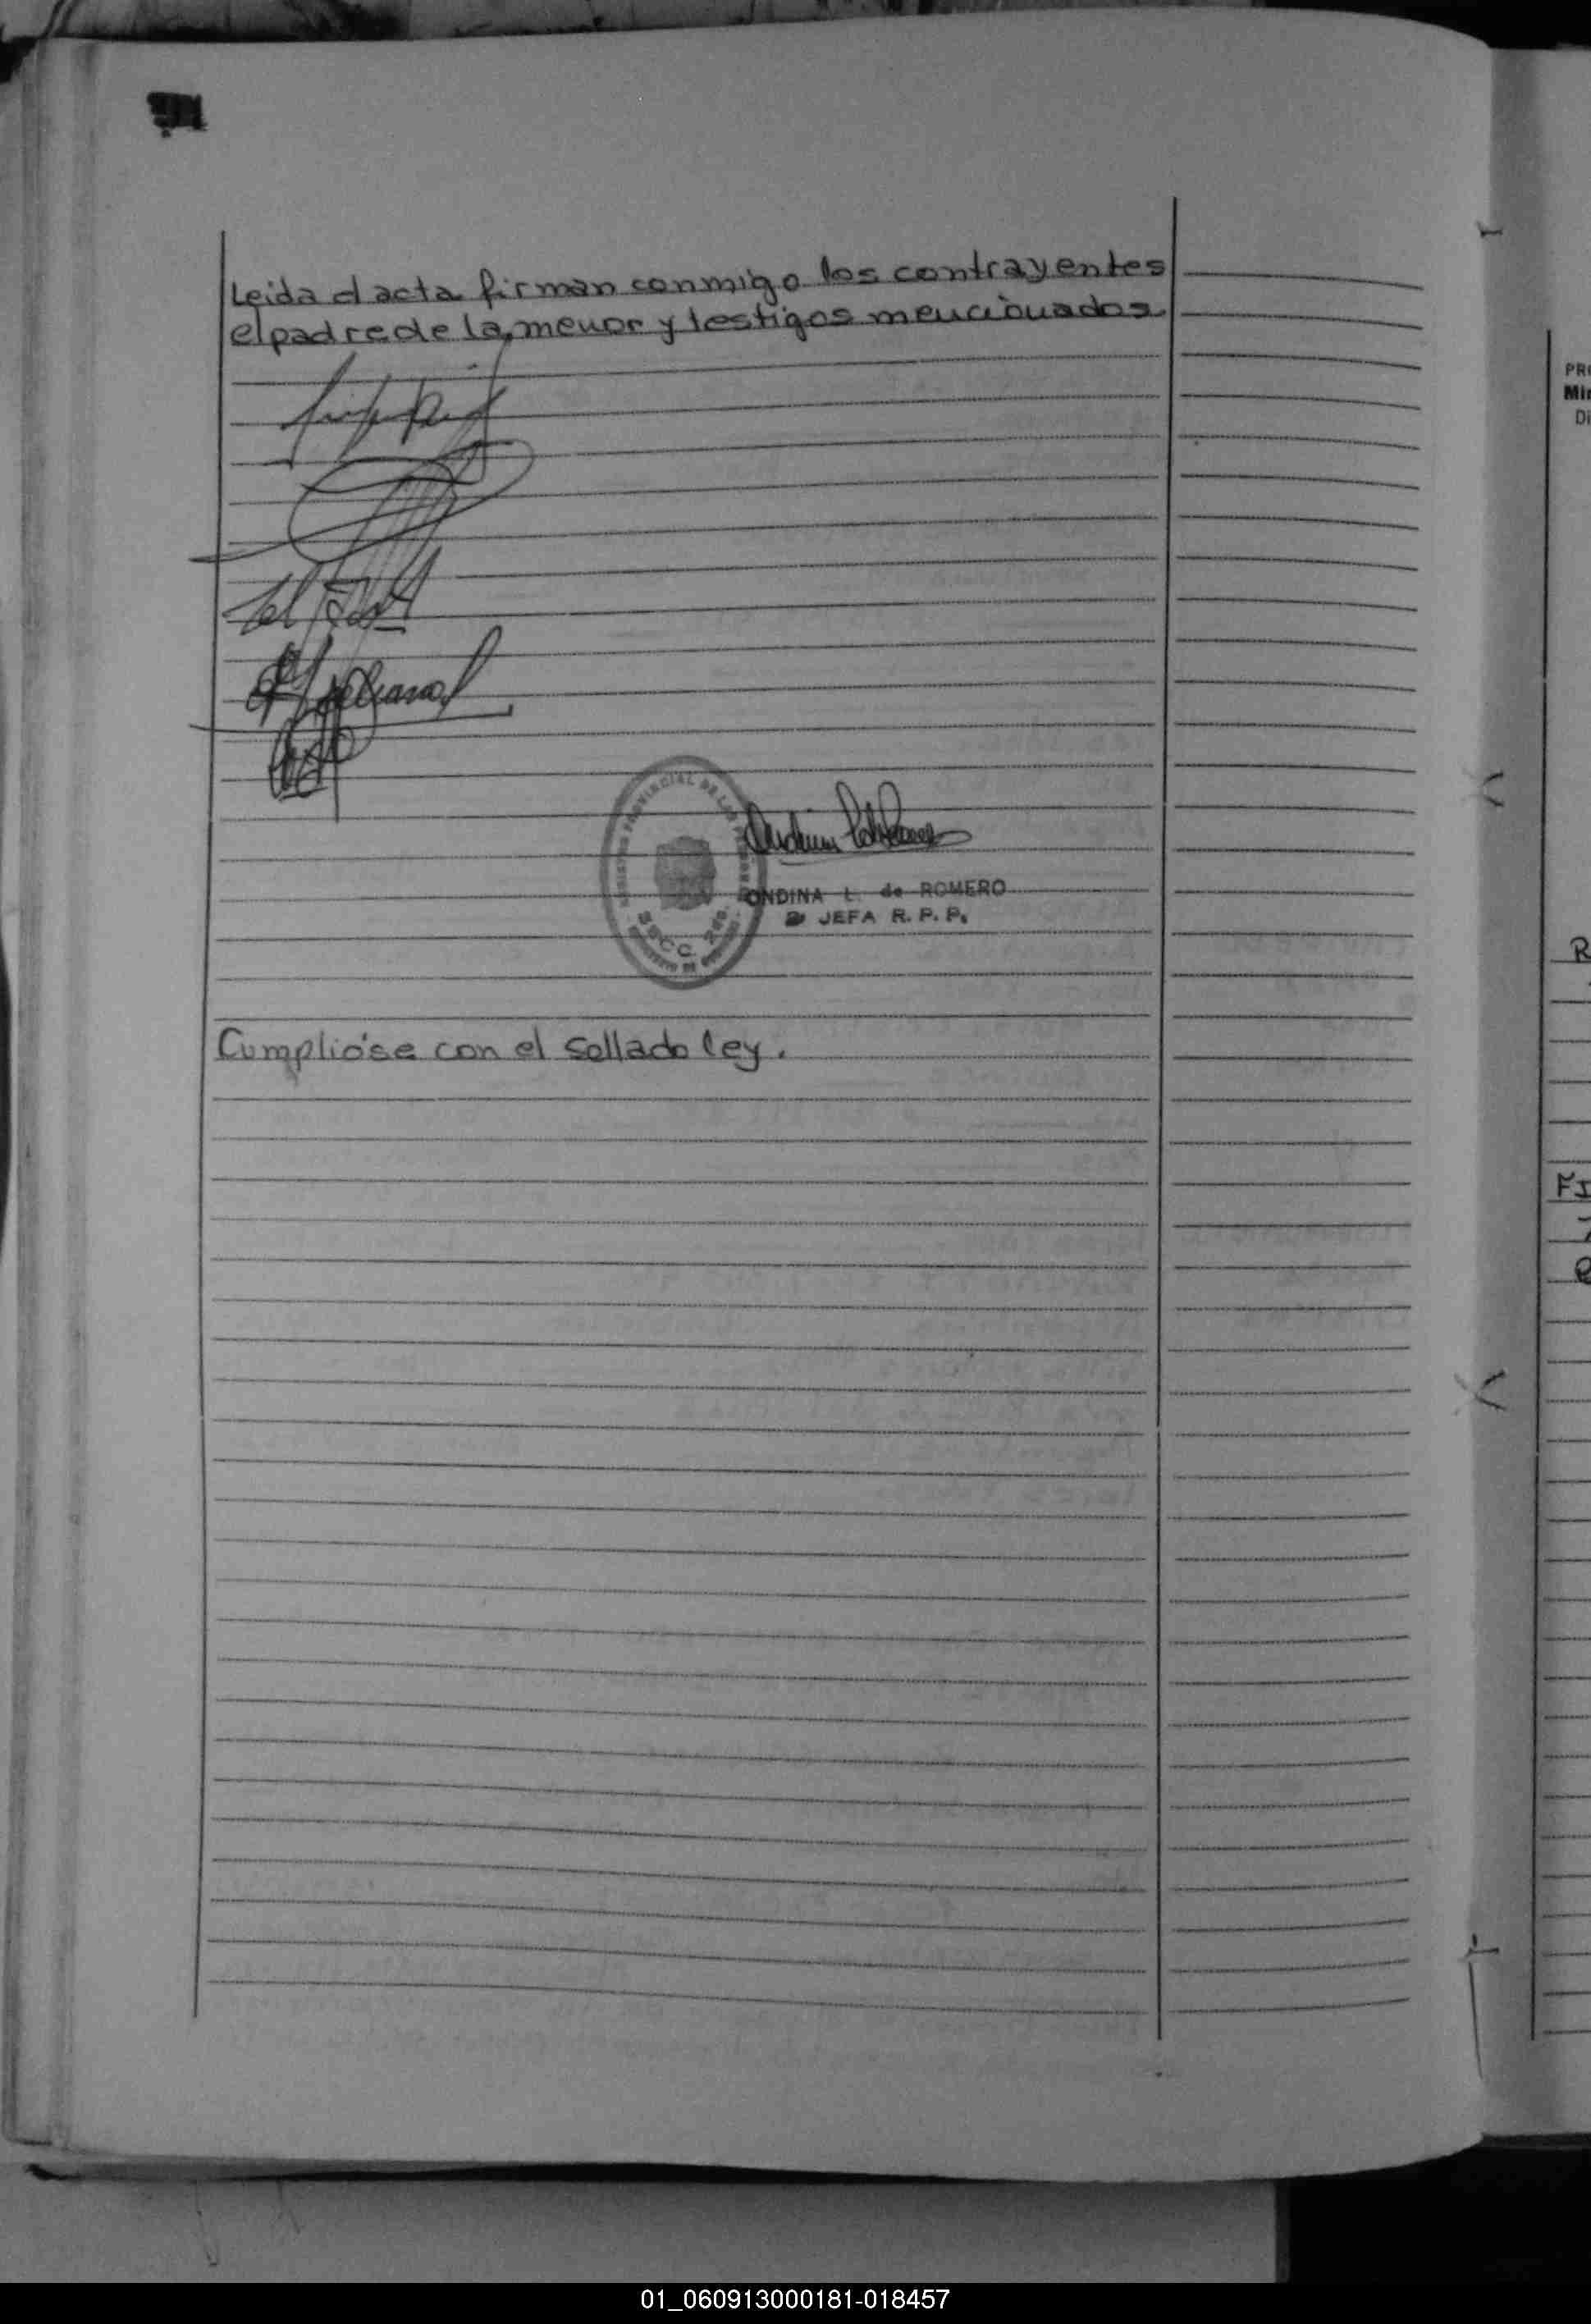 Leida el acta firman conmigo los contrayentes
el padre de la menor y testigos mencionados.
REGISTRO PROVINCIAL DE LAS PERSONAS
SECC. 2da.
ONDINA L. de ROMERO
JEFA R. P. P.
Cumplióse con el sellado ley.
PRO
Min
Di
R
FI
01_060913000181-018457